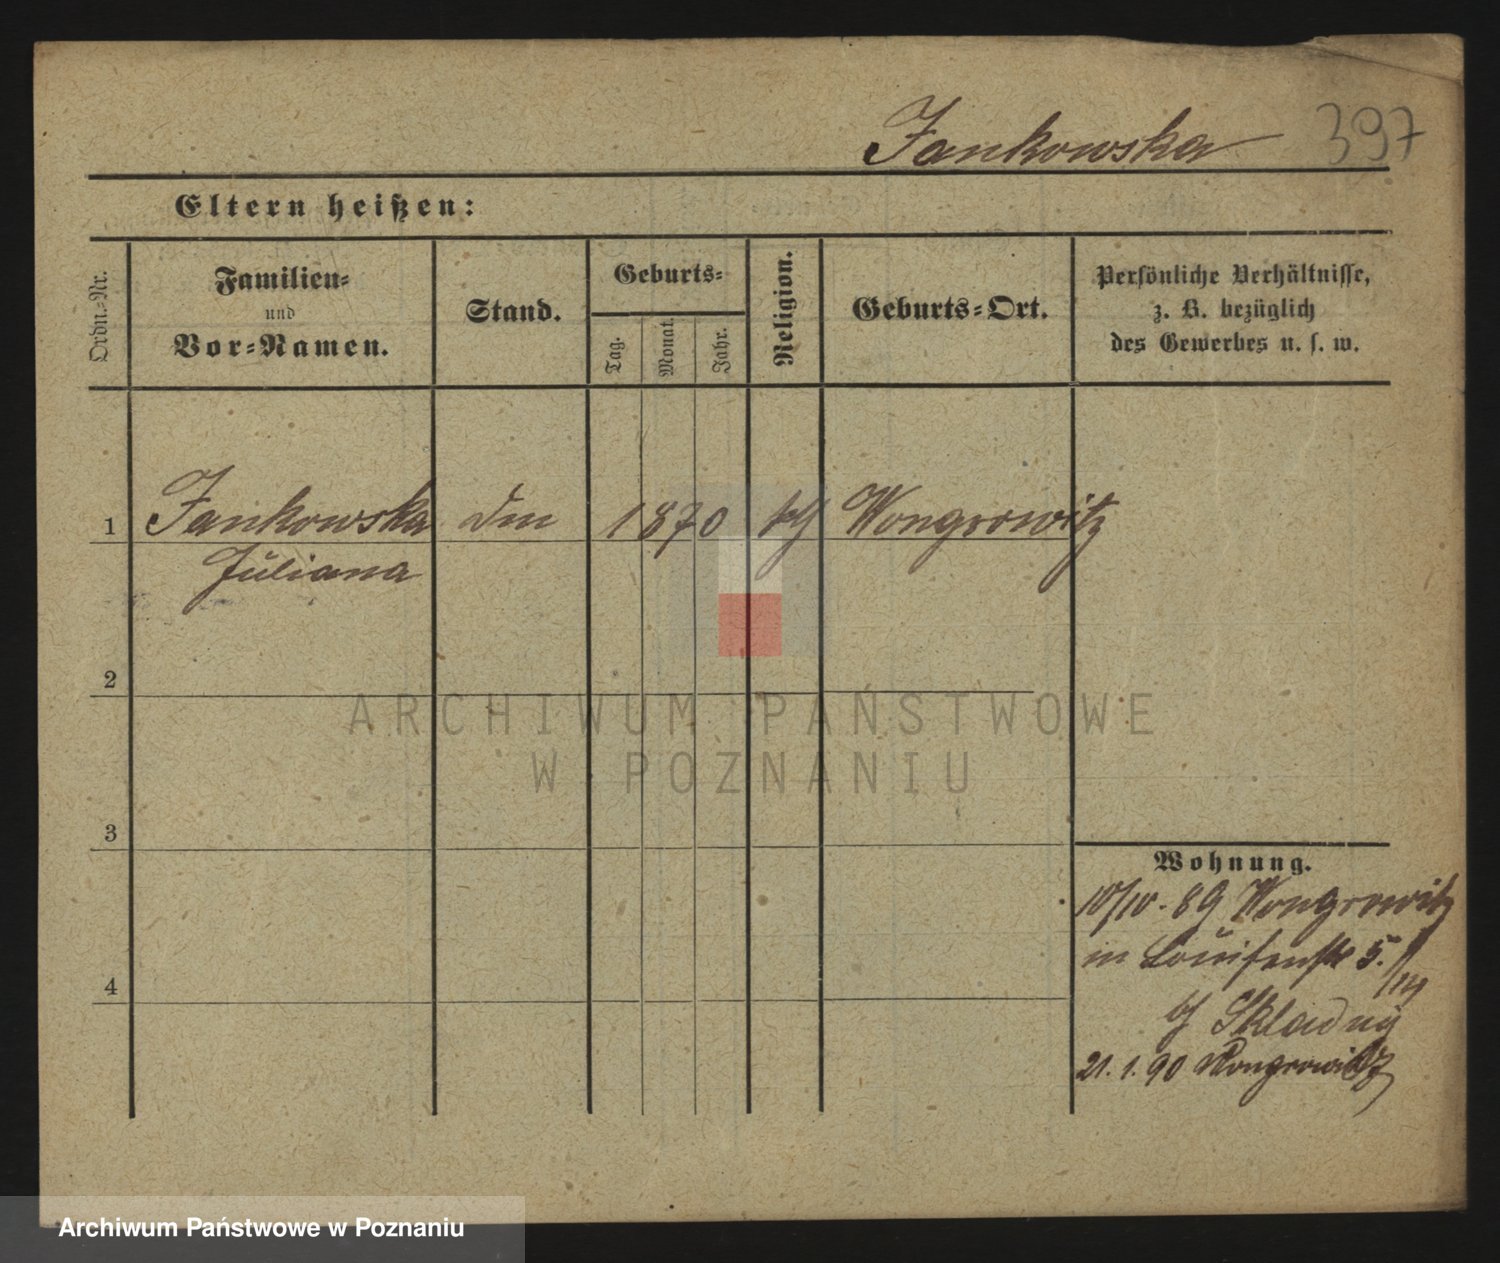 Jankowska 397
Eltern heißen:
Ordn.-Nr.
Familien-
und
Vor-Namen.
Stand.
Geburts-
Tag.
Monat.
Jahr.
Religion.
Geburts-Ort.
Persönliche Verhältnisse,
z. B. bezüglich
des Gewerbes u. s. w.
1 Jankowska 1870 Wongrowitz
Juliana
2
3
4
Wohnung.
10/10. 89 Wongrowitz
in Louisenstr 5.
bei Skladny
21. 1. 90 Wongrowitz
ARCHIWUM PAŃSTWOWE
W POZNANIU
Archiwum Państwowe w Poznaniu